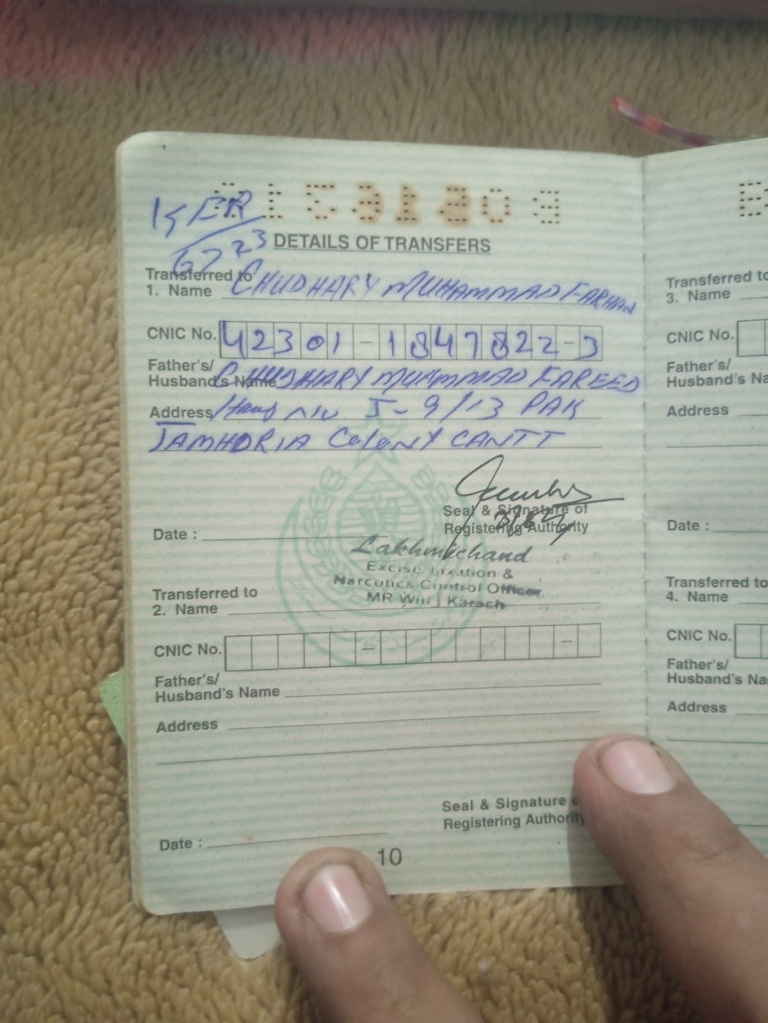 DETAILS OF TRANSFERS
Transferred to
1. Name CHUDHARY MUHAMMAD FARHAN
CNIC No. 42301-1847822-3
Father's/
Husband's Name CHUDHARY MUAMMAD FAREED
Address J-9/13 PAK
JAMHORIA COLONY CANTT
Seal & Signature of
Registering Authority
Date :
Lakhmichand
Excise Taxation &
Narcotics Control Officer
MR Karachi
Transferred to
2. Name
CNIC No. - -
Father's/
Husband's Name
Address
Seal & Signature
Registering Authority
Date :
10
Transferred to
3. Name
CNIC No.
Father's/
Husband's Na
Address
Date :
Transferred to
4. Name
CNIC No.
Father's/
Husband's Na
Address